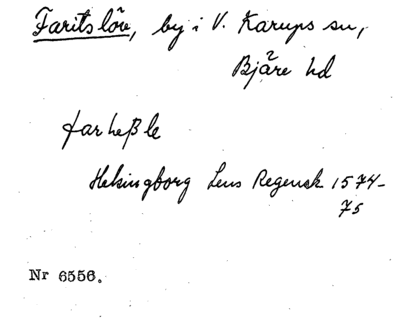 Faritslöv, by i V. Karups sn,
Bjäre hd
farheßle
Helsingborg Lens Regensk 1574-
75
Nr 6556.